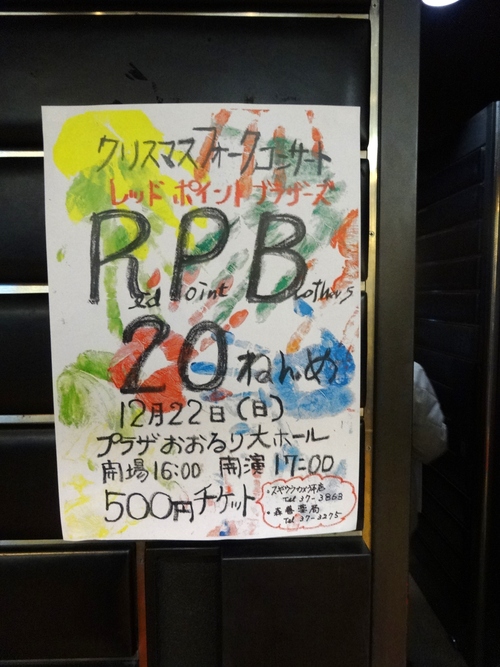 クリスマスフォークコンサート
レッド ポイント ブラザーズ
RPB
ed oint rothers
20ねんめ
12月22日(日)
プラザおおるり大ホール
開場16:00 開演17:00
500円チケット
・スギウラカメラ店
Tel 37-3868
・森養薬局
Tel 37-3275